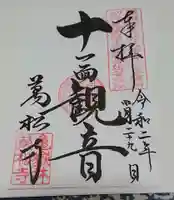 奉拝
令和二年
四月二十九日
十一面観音
萬松寺